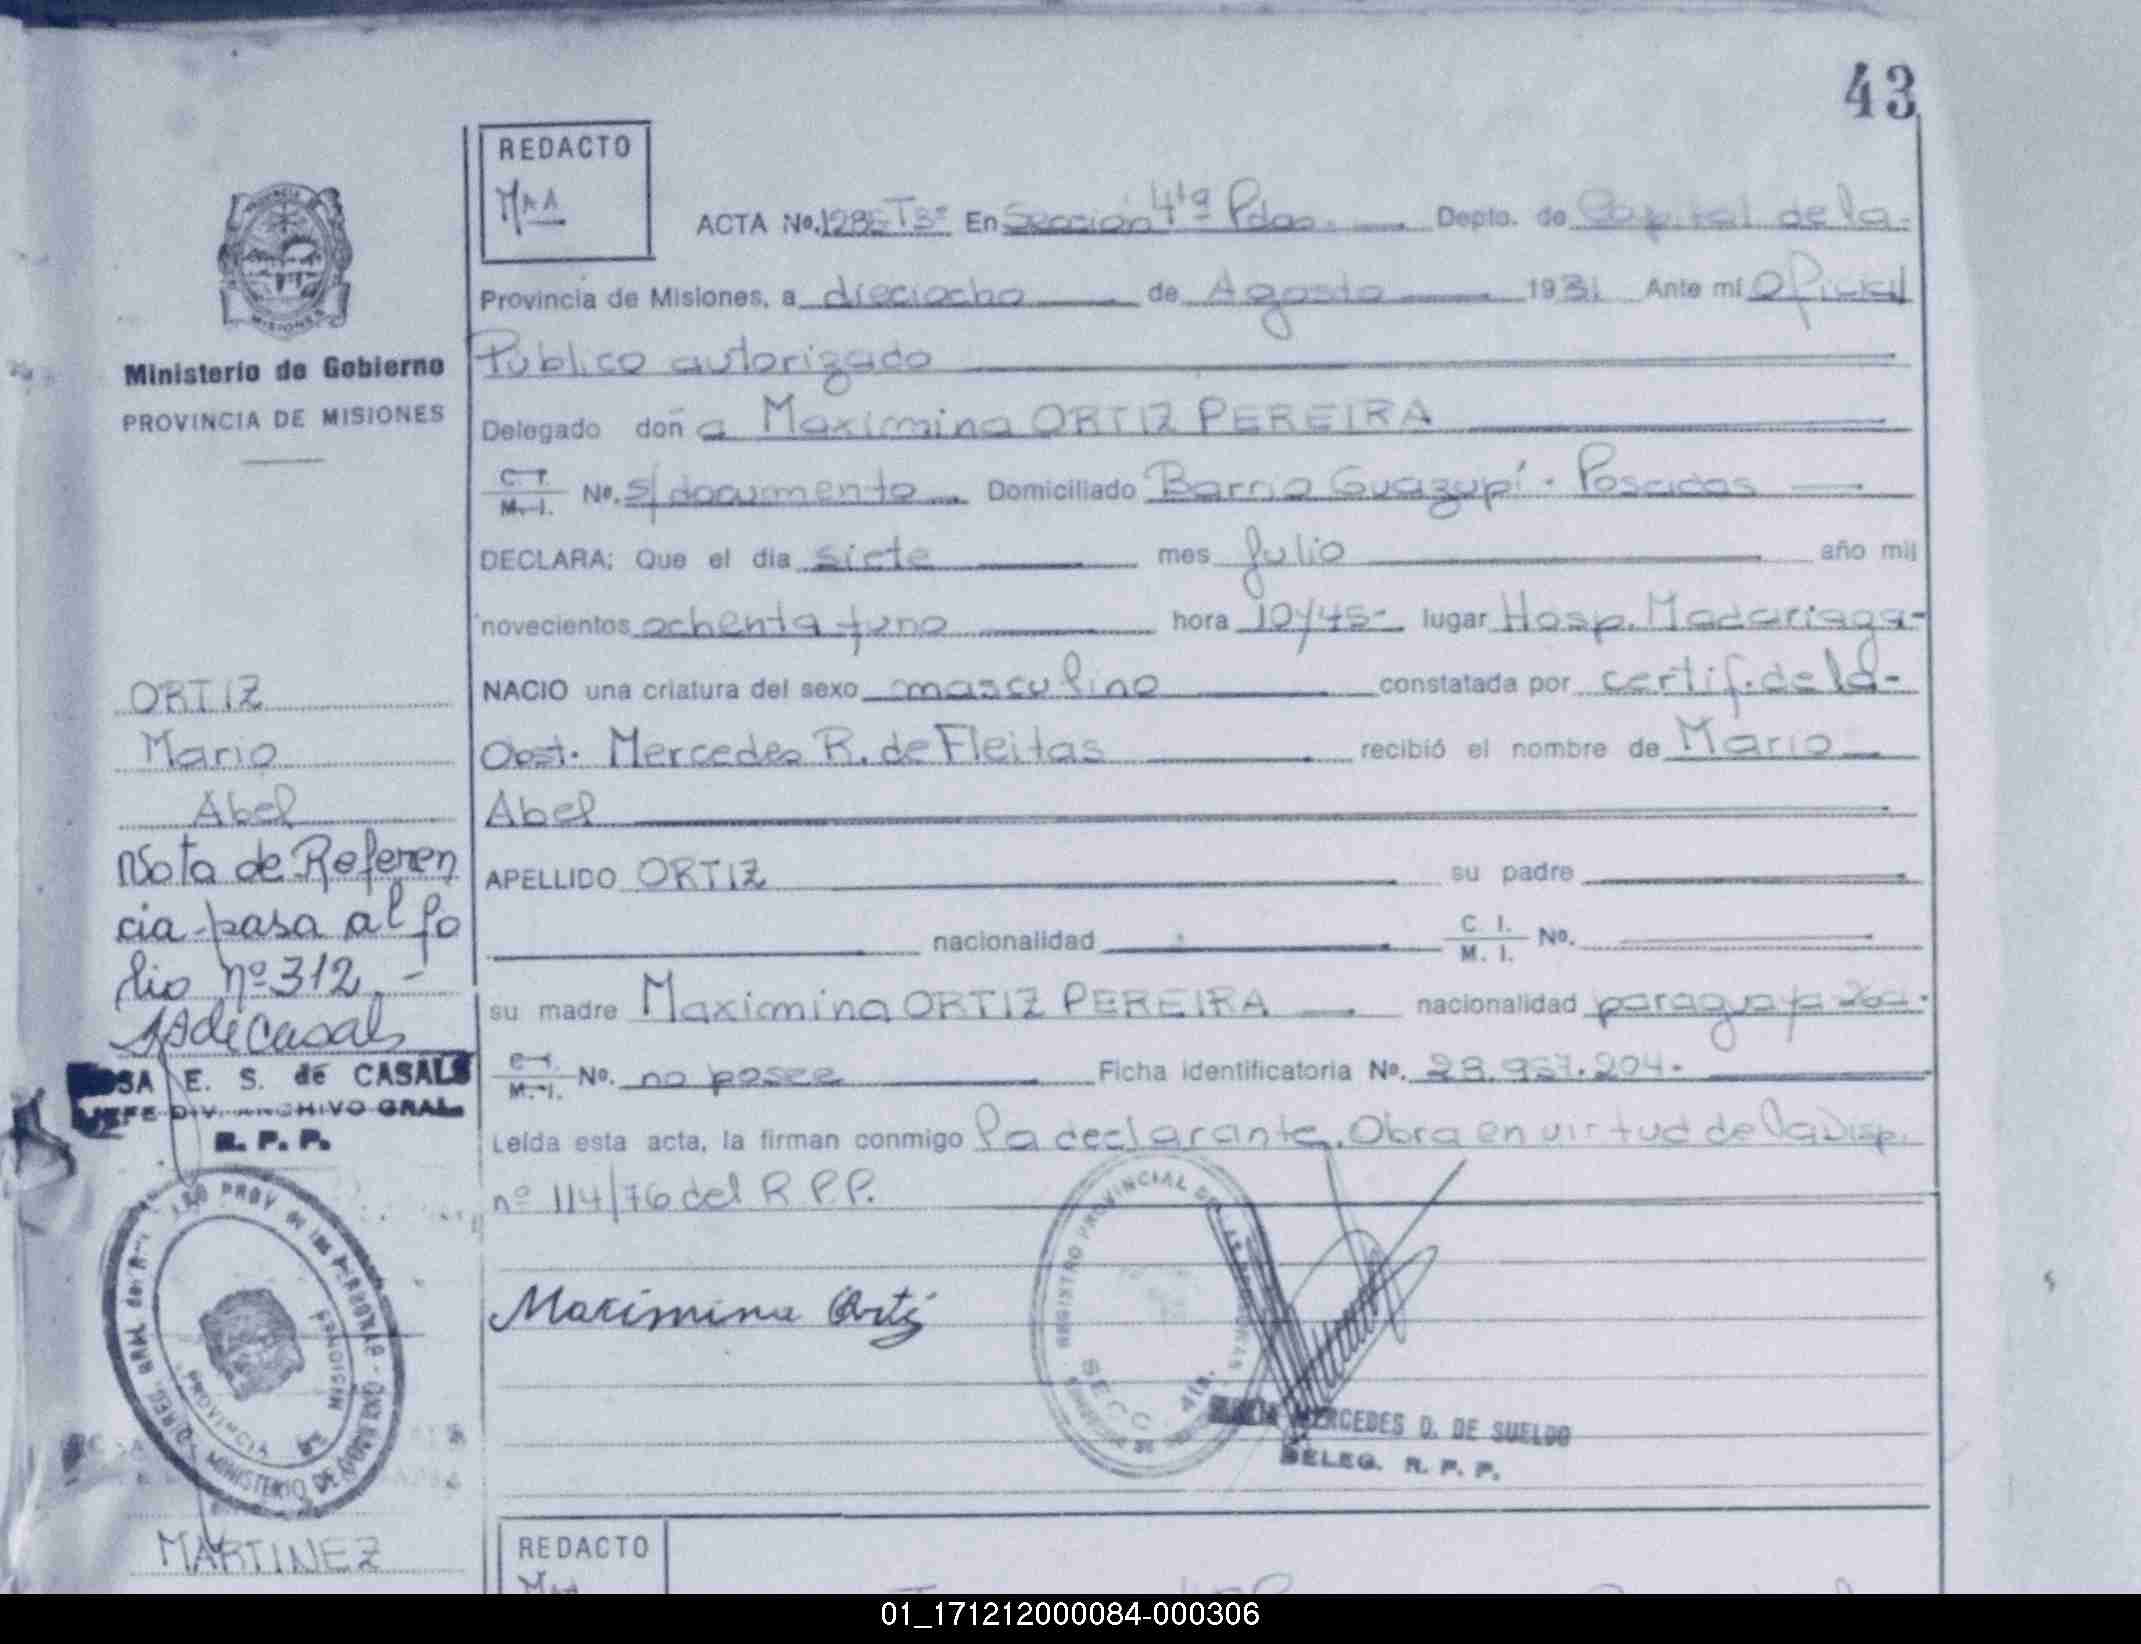 43
REDACTO
ACTA No. 1285 T3º En Sección 4ta Pdas. Depto. de Capital de la
Provincia de Misiones, a dieciocho de Agosto 1981 Ante mí Oficial
Público autorizado
Delegado doña Maximina ORTIZ PEREIRA
C. I. M. I. No. s/documento Domiciliado Barrio Guazupí - Posadas
DECLARA: Que el día siete mes Julio año mil
novecientos ochenta y uno hora 10/45- lugar Hosp. Madariaga-
NACIO una criatura del sexo masculino constatada por certif. de la-
Obst. Mercedes R. de Fleitas recibió el nombre de Mario
Abel
APELLIDO ORTIZ su padre
nacionalidad C. I. M. I. No.
su madre Maximina ORTIZ PEREIRA nacionalidad paraguaya
C. I. M. I. No. no posee Ficha identificatoria No. 28.957.204.
Leída esta acta, la firman conmigo la declarante. Obra en virtud de la Disp.
nº 114/76 del R P.P.
Maximina Ortiz
REGISTRO PROVINCIAL DE LAS PERSONAS
SECC. 4ta.
MERCEDES D. DE SUELDO
DELEG. R. P. P.
Ministerio de Gobierno
PROVINCIA DE MISIONES
ORTIZ
Mario
Abel
Nota de Referen
cia-pasa al fo
lio nº 312.-
E. S. de CASALS
JEFE DIV. ARCHIVO GRAL.
R. P. P.
MINISTERIO DE GOBIERNO
PROVINCIA DE MISIONES
MARTINEZ
REDACTO
01_171212000084-000306